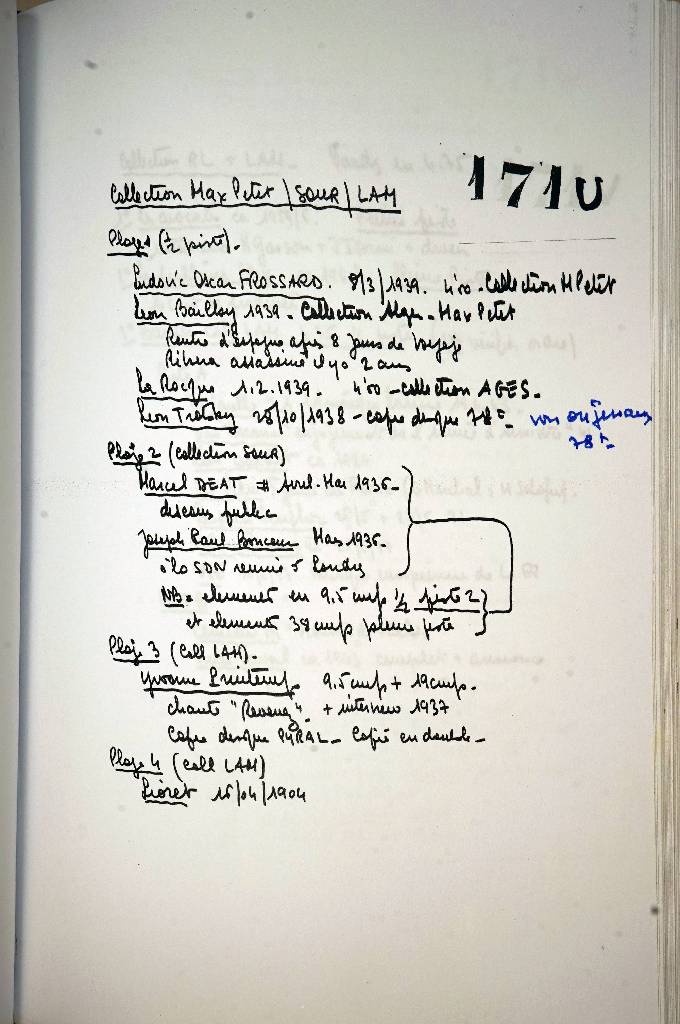 171U
Collection Max Petit / SOUR / LAM
Plage 1 (½ piste).
Ludovic Oscar FROSSARD. 8/3/1939. 4'00 - Collection M Petit
Leon Bailby 1939 - Collection - Max Petit
Rentre d'Espagne après 8 jours de voyage
Rivera assassiné il y a 2 ans
La Rocque 1.2.1939. 4'00 - collection AGES.
Leon Trotsky 28/10/1938 - copie disque 78t - voir
78t
Plage 2 (collection SOUR)
Marcel DEAT # Avril-Mai 1936 -
discours public
Joseph Paul Boncour Mars 1936.
à la SDN reunie à Londres
NB = elements en 9.5 cm/s ½ piste 2
et elements 38 cm/s pleine piste
Plage 3 (Coll LAM).
Yvonne Printemps 9.5 cm/s + 19 cm/s.
chante "Revenez". + interview 1937
Copie disque PYRAL - Copié en double -
Plage 4 (coll LAM)
Lioret 16/04/1904